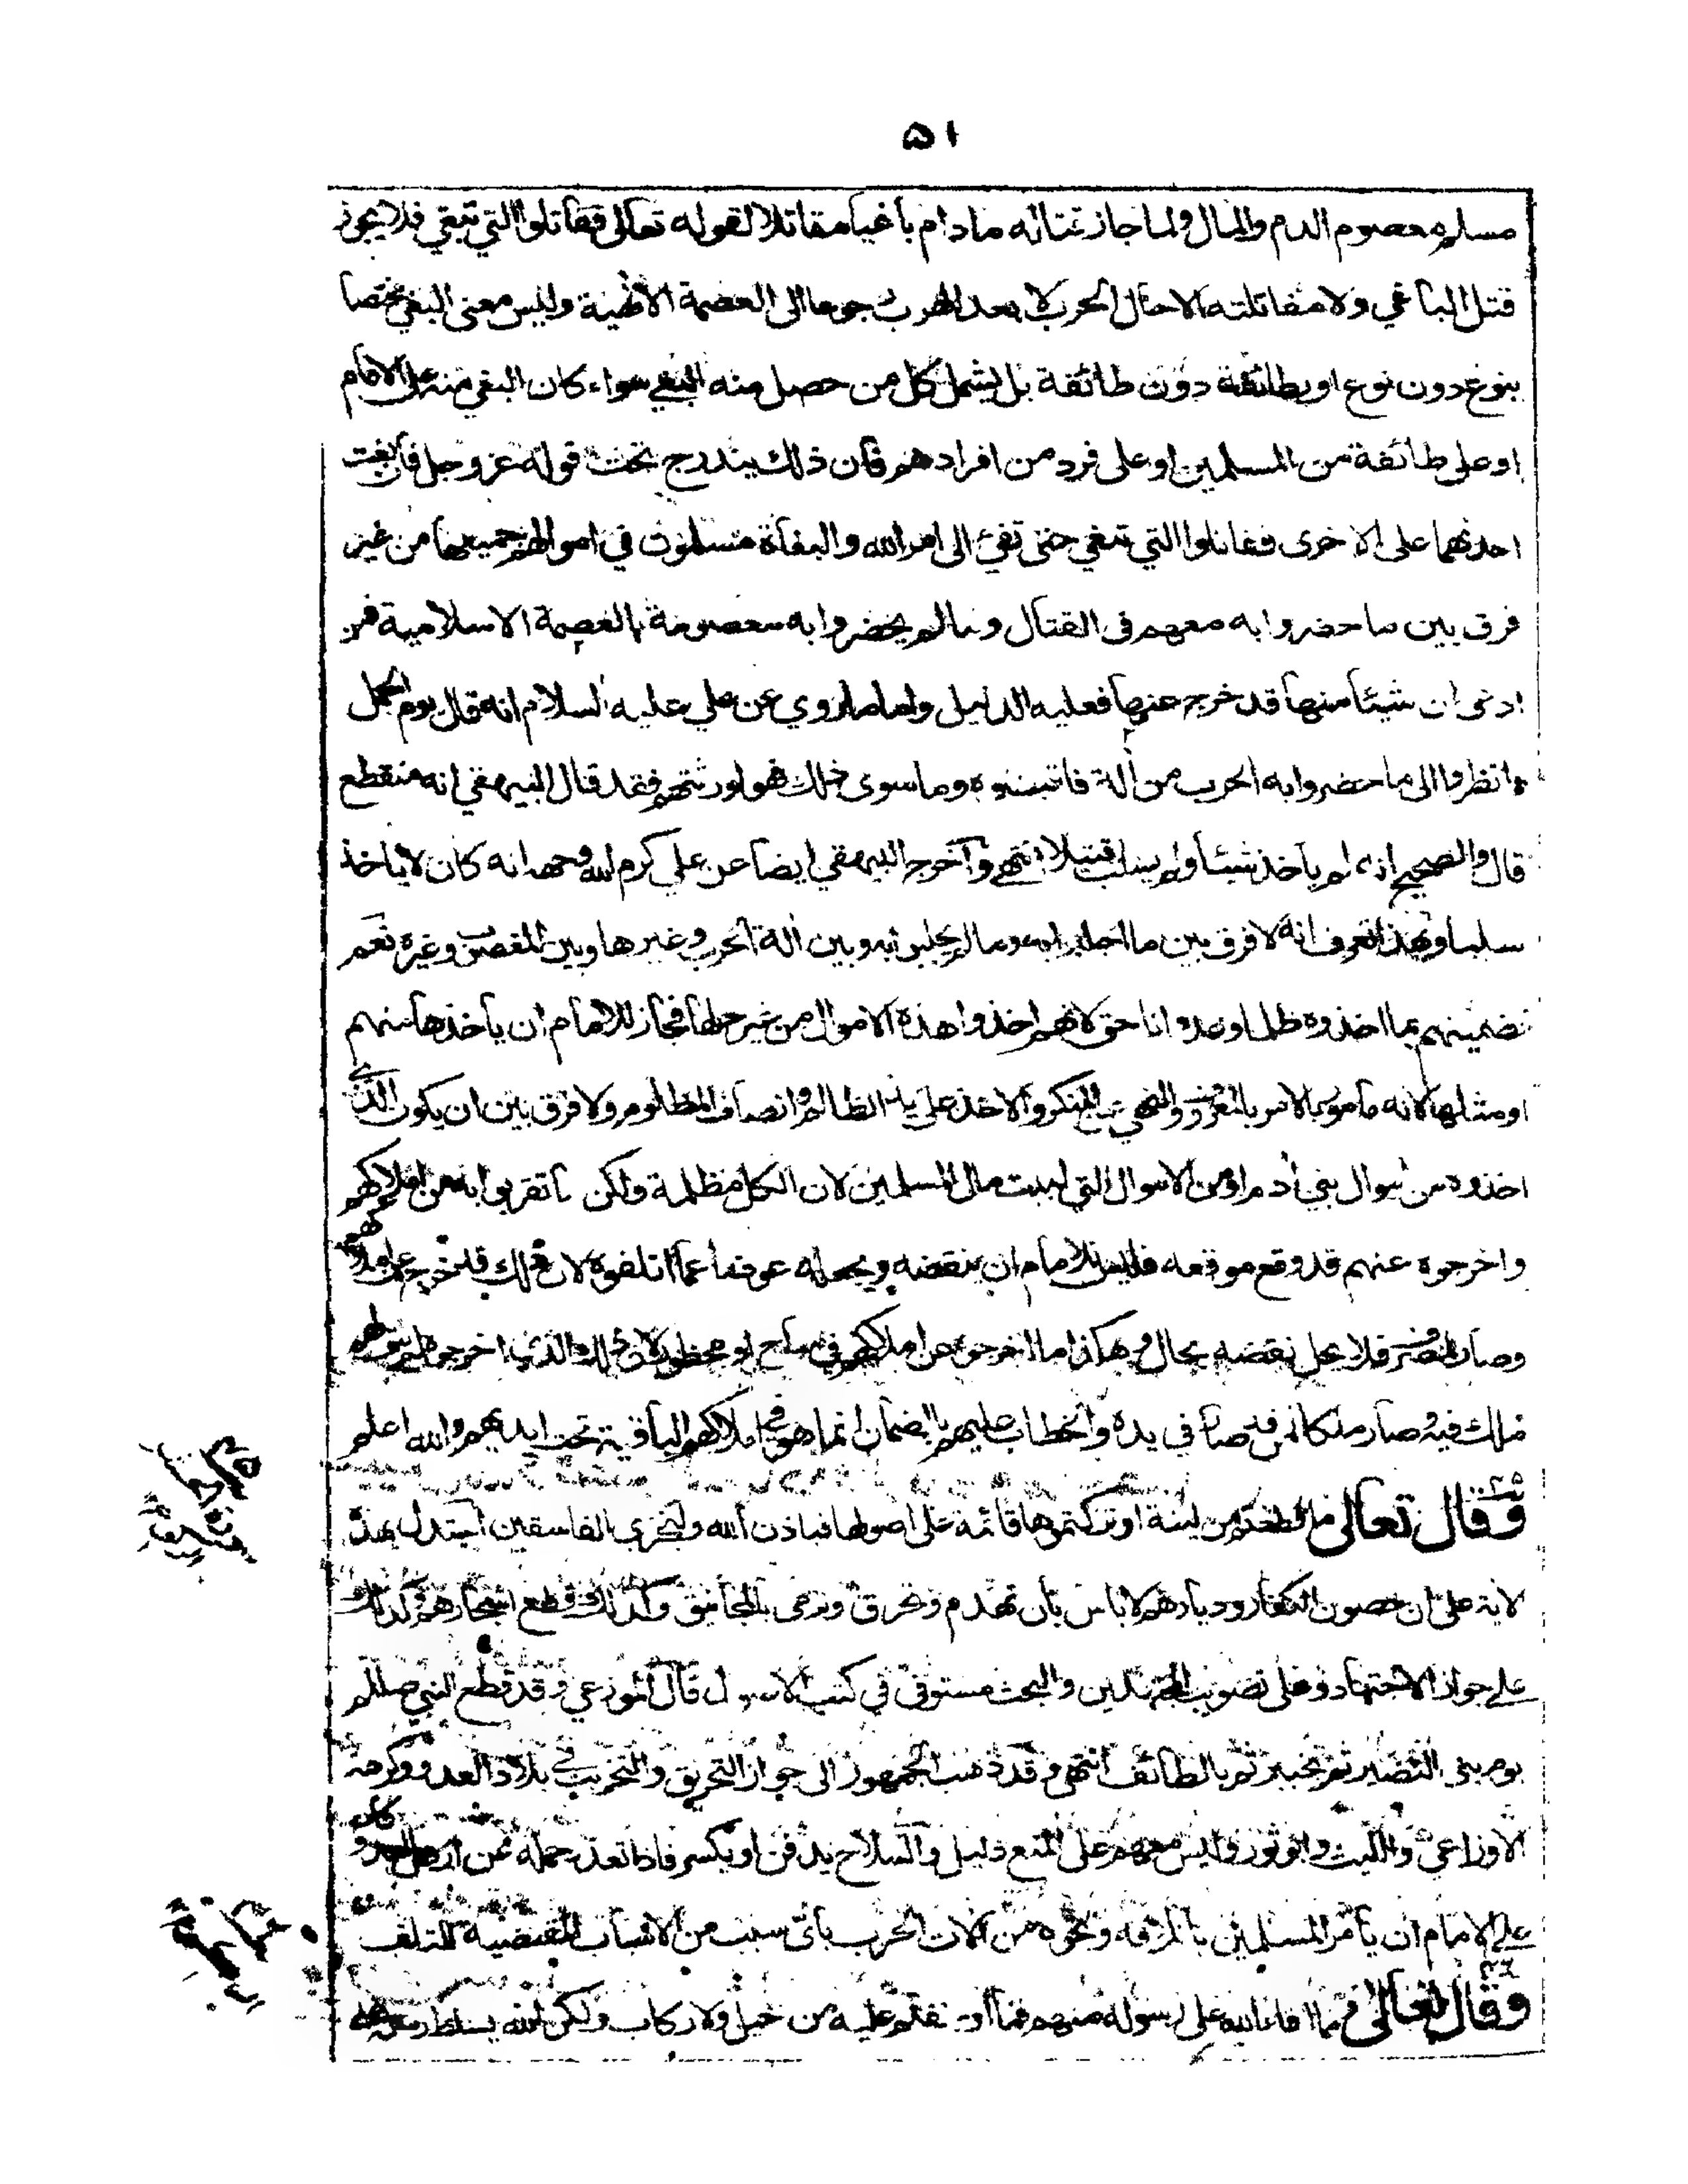 ٥١
مسلم معصوم الدم والمال ولما جاز قتاله مادام باغيا مقاتلا لقوله تعالى فقاتلوا التي تبغي فلا يجوز
قتل الباغي ولا مقاتلته الا حال الحرب لا بعد الهرب جوعا الى العصمة الاصلية وليس معنى البغي مختصا
بنوع دون نوع او بطائفة دون طائفة بل يشمل كل من حصل منه البغي سواء كان البغي منه على الامام
او على طائفة من المسلمين او على فرد من افرادهم فان ذلك يندرج تحت قوله عز وجل فان بغت
احدهما على الاخرى فقاتلوا التي تبغي حتى تفيء الى امر الله والبغاة مسلمون في اموالهم جميعها من غير
فرق بين ما حضروا به معهم في القتال وما لم يحضروا به معصومة بالعصمة الاسلامية فمن
ادعى ان شيئا منها قد خرج عنها فعليه الدليل واما ما روي عن علي عليه السلام انه قال يوم الجمل
انظروا الى ما حضروا به الحرب من آلة فاقبضوه وما سوى ذلك فهو لورثتهم فقد قال البيهقي انه منقطع
قال والصحيح انه لم ياخذ شيئا ولم يسلب قتيلا انتهى واخرج البيهقي ايضا عن علي كرم الله وجهه انه كان لا ياخذ
سلبا وبهذا تعرف انه لا فرق بين ما اجلبوا به وما لم يجلبوا به وبين آلة الحرب وغيرها وبين المغصوب وغيره نعم
تضمينهم بما اخذوه ظلما وعدوانا حق لانهم اخذوا هذه الاموال من غير حلها فجاز للامام ان ياخذها منهم
او مثلها لانه مامور بالامر بالمعروف والنهي عن المنكر والاخذ على يد الظالم وانصاف المظلوم ولا فرق بين ان يكون الذي
اخذوه من اموال بني آدم او من الاموال التي لبيت مال المسلمين لان الكل مظلمة ولكن ما تقربوا به من املاكهم
واخرجوه عنهم قد وقع موقعه فليس للامام ان ينقضه ويجعله عوضا عما اتلفوه لان ذلك قد خرج عن املاكهم
وصار فلا يحل نقضه بحال وهكذا ما اخرجوه عن املاكهم في مباح او محظور لان ذلك الذي اخرجوه
ملك فيه وصار ملكا لمن صار في يده والخطاب عليهم بالضمان انما هو في املاكهم الباقية تحت ايديهم والله اعلم
وقال تعالى ما قطعتم من لينة او تركتموها قائمة على اصولها فباذن الله وليخزي الفاسقين استدل بهذه
لاية على ان حصون الكفار وديارهم لا باس بان تهدم وتحرق وترمى بالمجانيق وكذلك قطع اشجارهم وكذلك
على جواز الاجتهاد وعلى تصويب المجتهدين والبحث مستوفى في كتب الاصول قال الموزعي وقد قطع النبي صللم
يوم بني النضير ثم بخيبر ثم بالطائف انتهى وقد ذهب الجمهور الى جواز التحريق والتخريب في بلاد العدو وكرهه
الاوزاعي والليث وابو ثور وليس معهم على المنع دليل والسلاح يدفن او يكسر فاذا تعذر حمله عن ارض العدو كان
على الامام ان يامر المسلمين باتلافه ونحوه من آلات الحرب باي سبب من الاسباب المقتضية للتلف
وقال تعالى ما افاء الله على رسوله منهم فما اوجفتم عليه من خيل ولا ركاب ولكن الله يسلط رسله